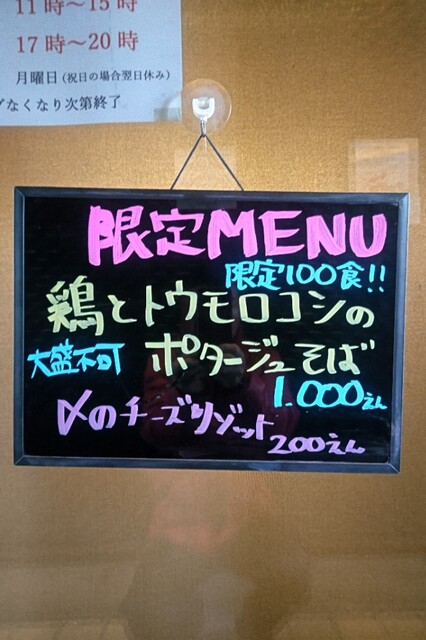 11時～15時
17時～20時
月曜日(祝日の場合翌日休み)
なくなり次第終了
限定MENU
限定100食!!
鶏とトウモロコシの
大盛不可 ポタージュそば
1.000えん
〆のチーズリゾット
200えん